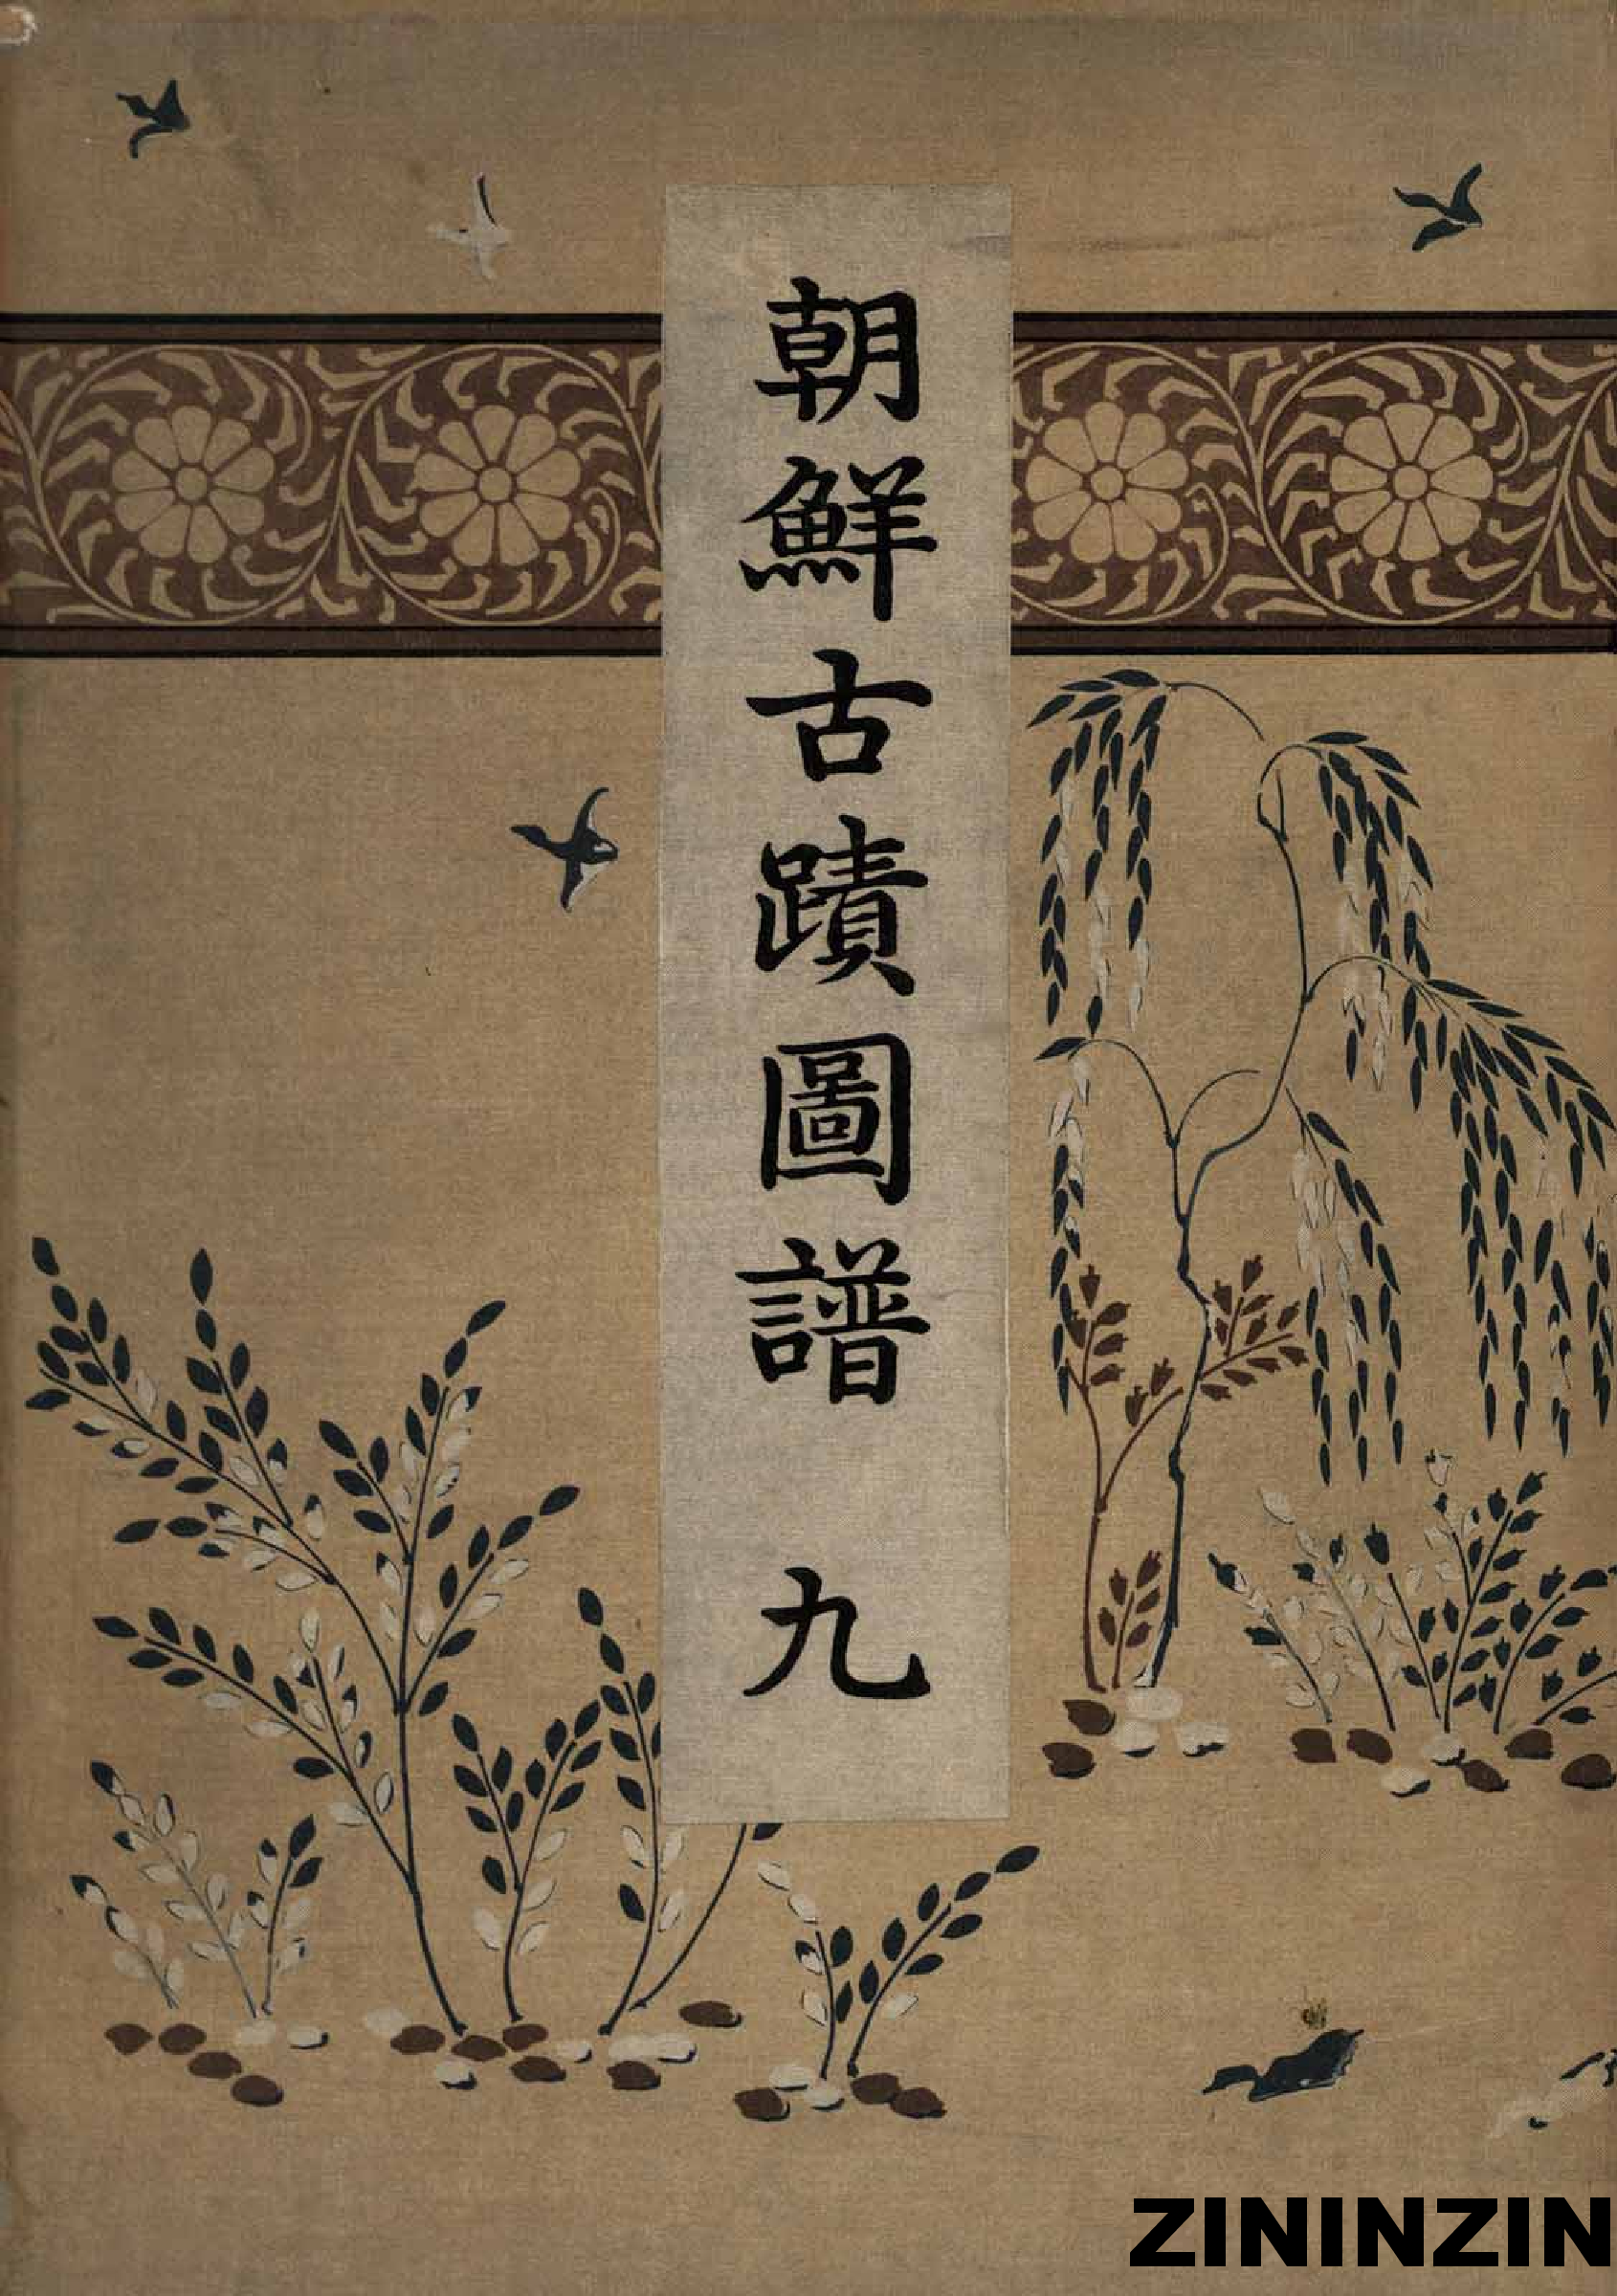 朝鮮古蹟圖譜 九
ZININZIN